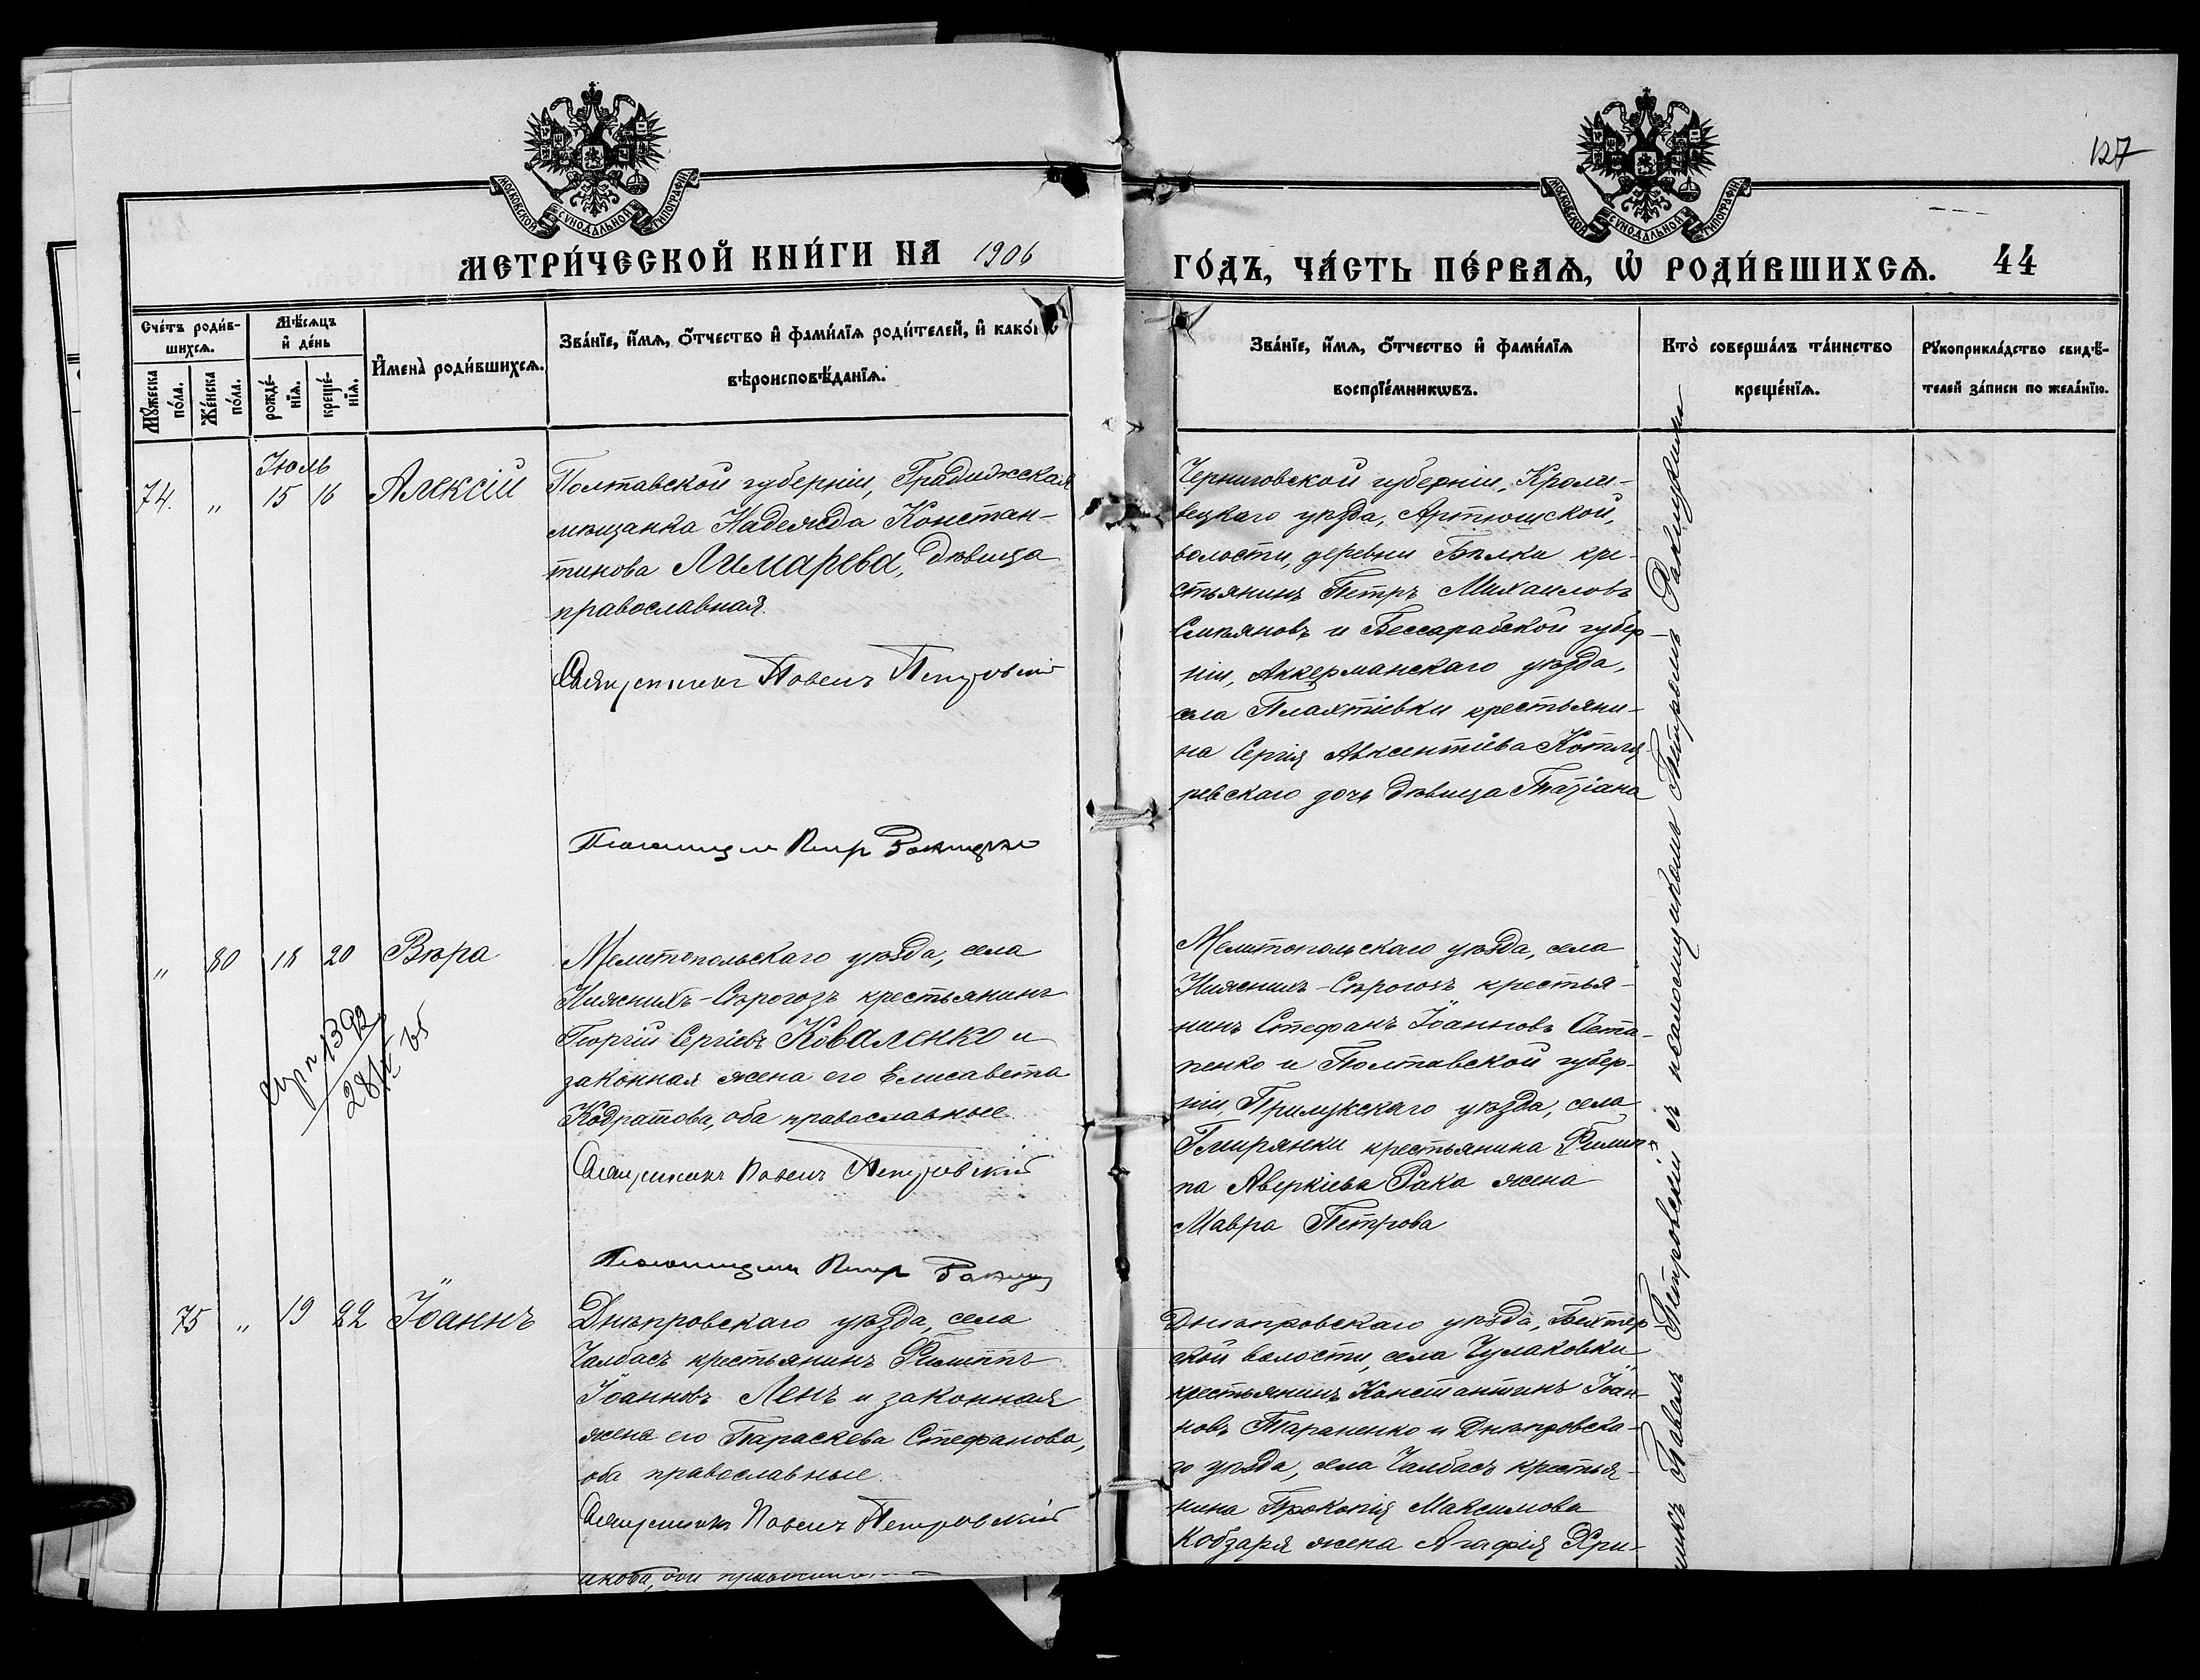 127
МОСКОВСКОЙ СУНОДАЛЬНОЙ ТИПОГРАФІИ
МОСКОВСКОЙ СУНОДАЛЬНОЙ ТИПОГРАФІИ
МЕТРИ́ЧЕСКОЙ КНИ́ГИ НА 1906
ГО́ДЪ, ЧА́СТЬ ПЕ́РВАѦ, Ѿ РОДИ́ВШИХСѦ. 44
Сче́тъ роди́в-
шихсѧ.
Мꙋ́жеска по́ла.
Же́нска по́ла.
Мѣ́сѧцъ
и҆ де́нь
рожде́-
нїѧ.
креще́-
нїѧ.
И҆мена̀ роди́вшихсѧ.
Зва́нїе, и҆́мѧ, ѻ҆́тчество и҆ фами́лїѧ роди́телей, и҆ како́гѡ
вѣроисповѣ́данїѧ.
Зва́нїе, и҆́мѧ, ѻ҆́тчество и҆ фами́лїѧ
воспрїе́мникѡвъ.
Кто̀ соверша́лъ та́инство
креще́нїѧ.
Рꙋкоприкла́дство свидѣ́-
телей за́писи по жела́нїю.
Іюль
74. " 15 16 Алексій
Полтавской губерніи, Градижская
мѣщанка Надежда Констан-
тинова Лимарева, дѣвица
православная.
Священникъ Павелъ Петровскій
Псаломщикъ Петр Ракицкій
Черниговской губерніи, Кроле-
вецкаго уѣзда, Артюшской,
волости, деревни Бѣлки кре-
стьянинъ Петръ Михаиловъ
и Бессарабской губер-
ніи, Аккерманскаго уѣзда,
села Плахтіевки крестьяни-
на Сергія Авксентіева Котля-
ревскаго дочь дѣвица Татіана
" 80 18 20 Вѣра
1392
28 65
Мелитопольскаго уѣзда, села
Нижнихъ-Сѣрогозъ крестьянинъ
Георгій Сергіевъ Коваленко и
законная жена его Елисавета
Кодратова, оба православные
Священникъ Павелъ Петровскій
Псаломщикъ Петр
Мелитопольскаго уѣзда, села
Нижнихъ-Сѣрогозъ крестья-
нинъ Стефанъ Іоанновъ Оста-
пенко и Полтавской губер-
ніи, Прилукскаго уѣзда, села
Гмирянки крестьянина Филип-
па Аверкіева Рака жена
Мавра Петрова
75 " 19 22 Іоаннъ
Днѣпровскаго уѣзда, села
Чалбасъ крестьянинъ Филиппъ
Іоанновъ Ленъ и законная
жена его Параскева Стефанова,
оба православные.
Священникъ Павелъ Петровскій
Днѣпровскаго уѣзда, Бехтер-
ской волости, села Чулаковки
крестьянинъ Константинъ Іоан-
новъ Тараненко и Днѣпровска-
го уѣзда, села Чалбасъ крестья-
нина Прокопія Максимова
Кобзаря жена Агафія Хри-
Павелъ Петровскій съ псаломщикомъ Петромъ Ракицкимъ